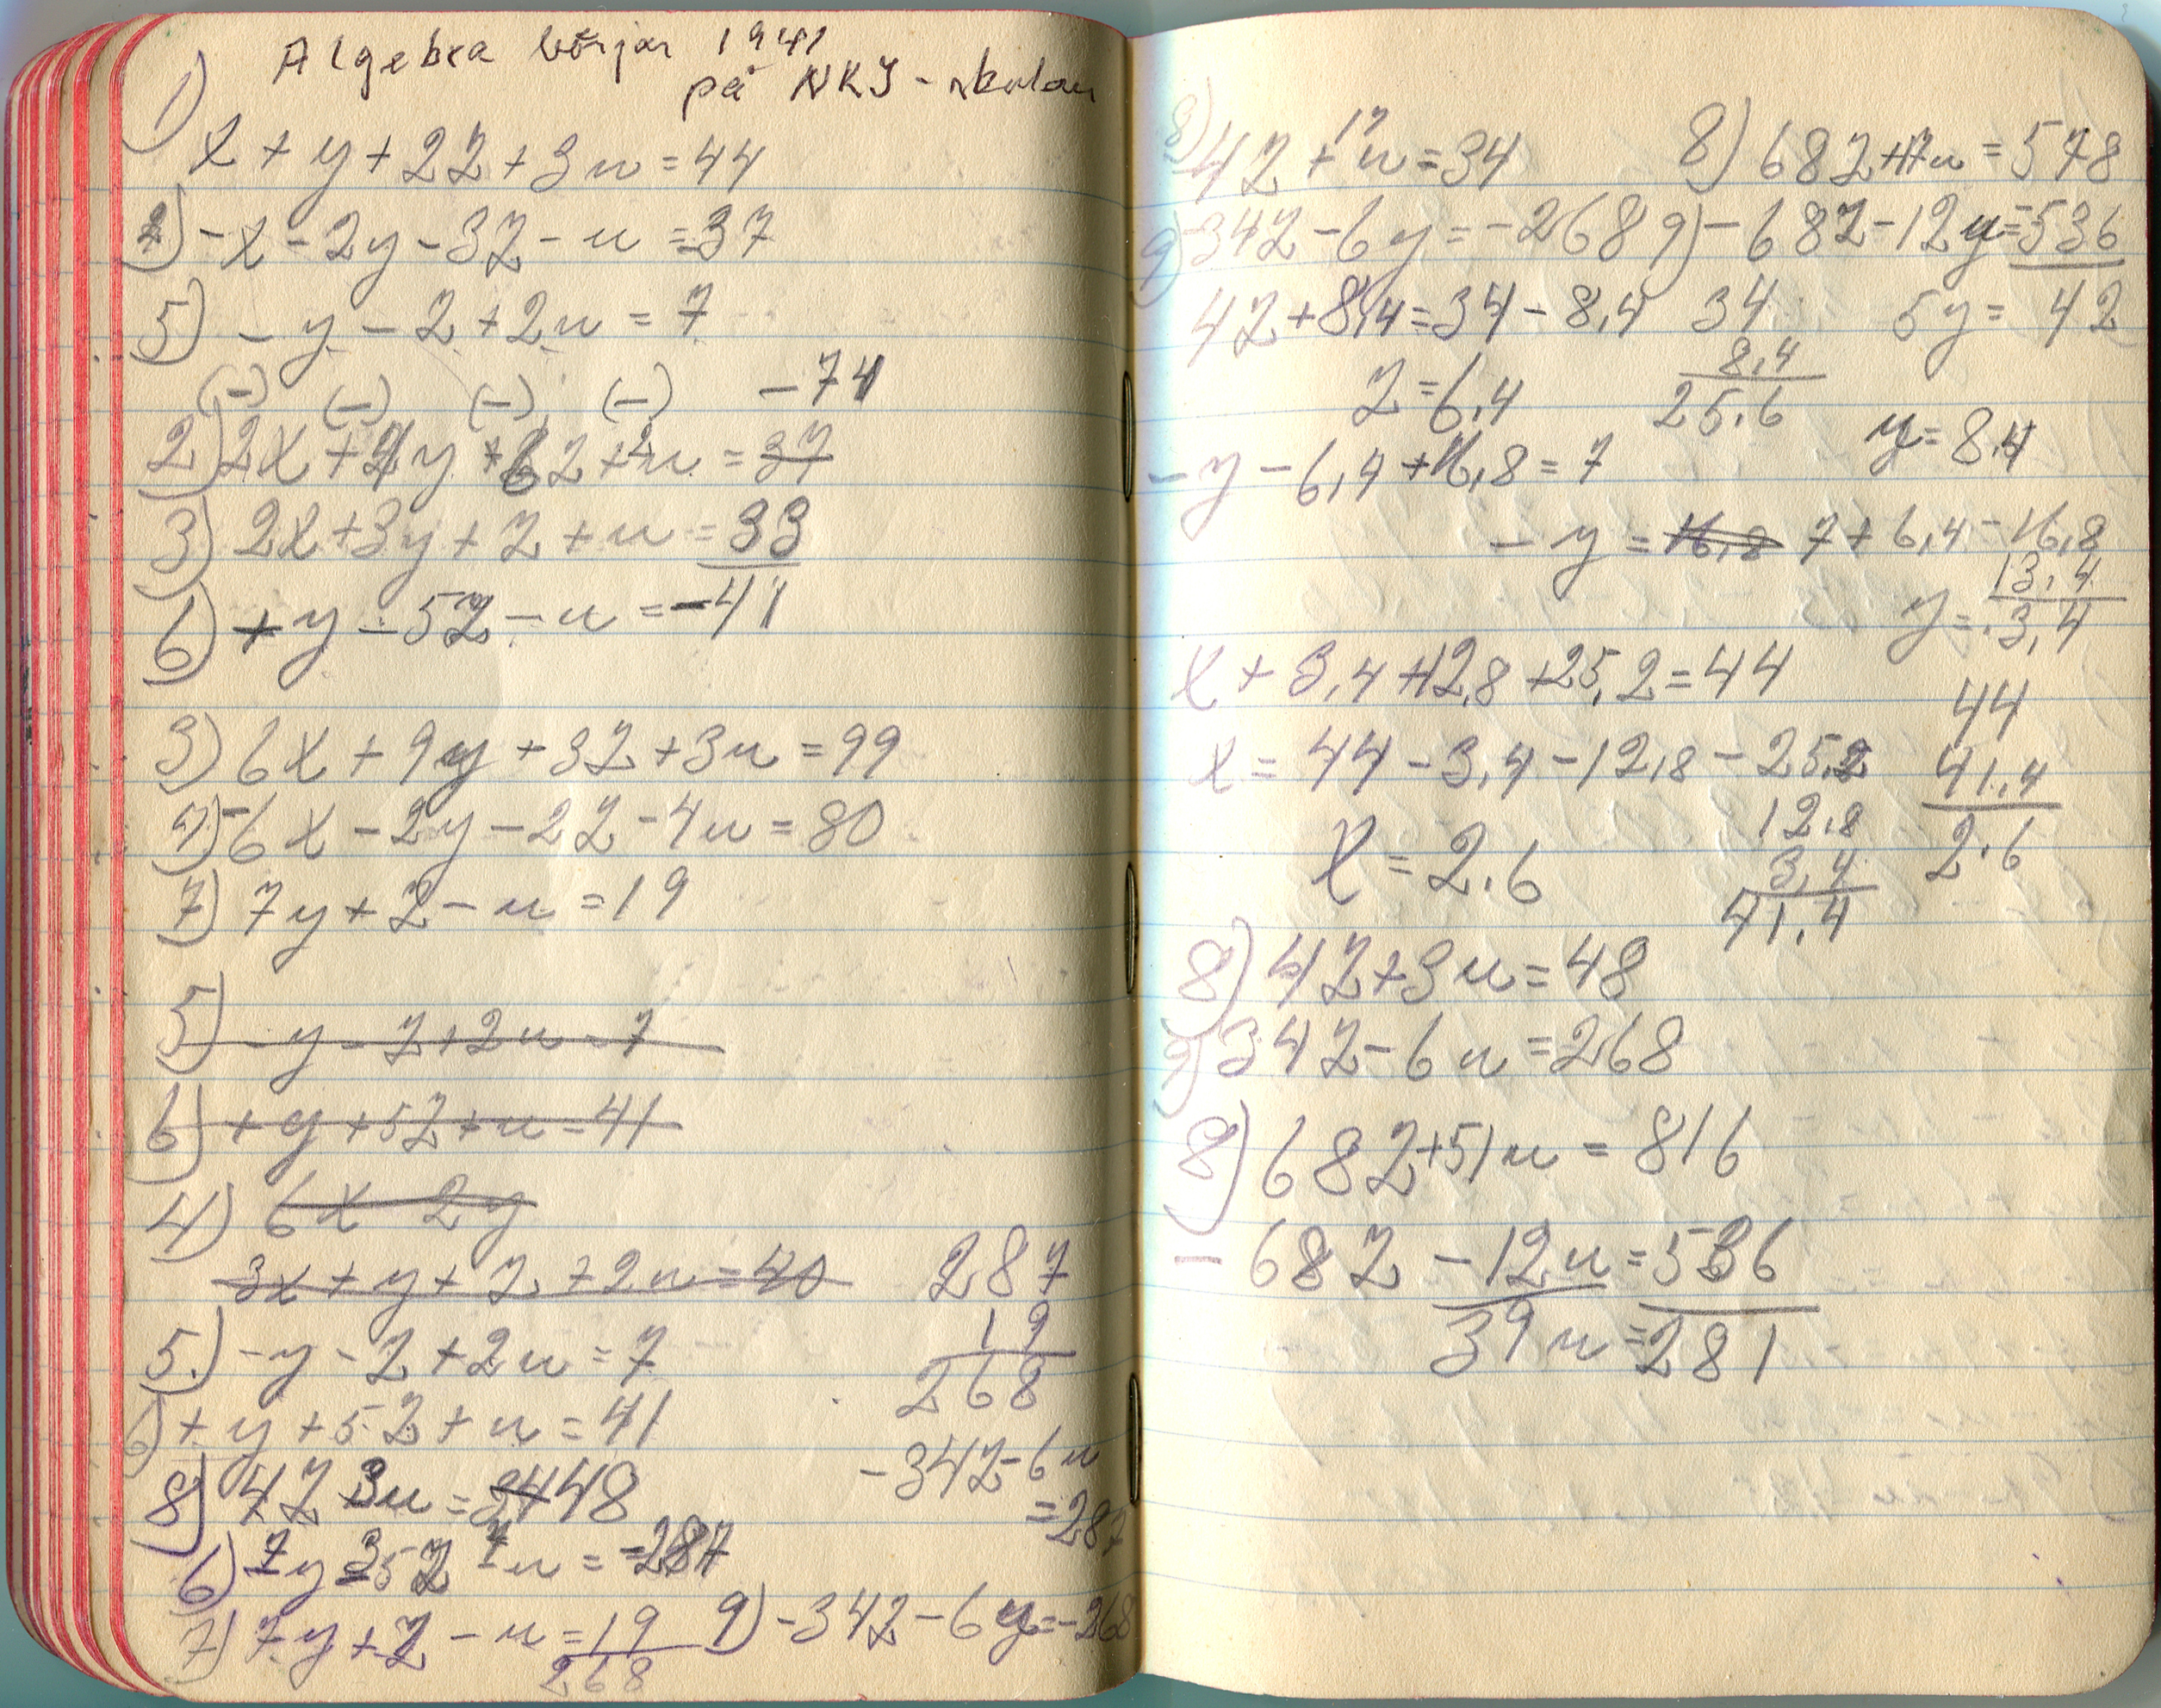 Algebra börjar 1941
på NKI-skolan
1) x + y + 2z + 3u = 44
2) -x - 2y - 3z - u = -37
5) - y - z + 2u = 7
(-) (-) (-) (-) -74
2) 2x + 4y + 6z + 2u = 37
3) 2x + 3y + z + u = 33
6) + y - 5z - u = -41
3) 6x + 9y + 3z + 3u = 99
4) -6x - 2y - 2z - 4u = 80
7) 7y + z - u = 19
5) - y - z + 2u = 7
6) + y + 5z + u = 41
4) 6x 2y
3x + y + z + 2u = 40
287
19
268
5.) - y - z + 2u = 7
6) + y + 5z + u = 41
-34z - 6u
= 287
8) 4z 3u = 48
6) 7y 35z 7u = -287
7) 7y + z - u = 19
268
9) -34z - 6y = -268
8) 4z + u = 34
9) 34z - 6y = -268
4z + 8,4 = 34 - 8,4
34
8,4
25.6
z = 6,4
8) 68z + 17u = 578
9) - 68z - 12y = -536
5y = 42
y = 8,4
- y - 6,4 + 16,8 = 7
- y = 16,8 7 + 6,4 - 16,8
13,4
y = 3,4
x + 3,4 + 12,8 + 25,2 = 44
x = 44 - 3,4 - 12,8 - 25,2
12,8
3,4
41,4
44
41,4
2.6
x = 2.6
8) 4z + 3u = 48
9) 34z - 6u = 268
8) 68z + 51u = 816
- 68z - 12u = 536
39u = 281